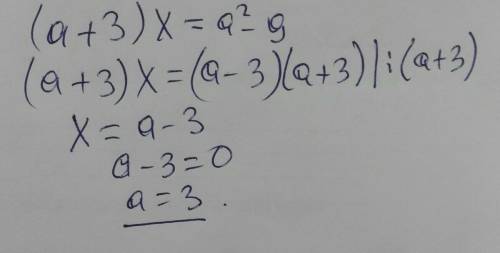 (a+3)x=a²-9
(a+3)x=(a-3)(a+3)|:(a+3)
x=a-3
a-3=0
a=3.